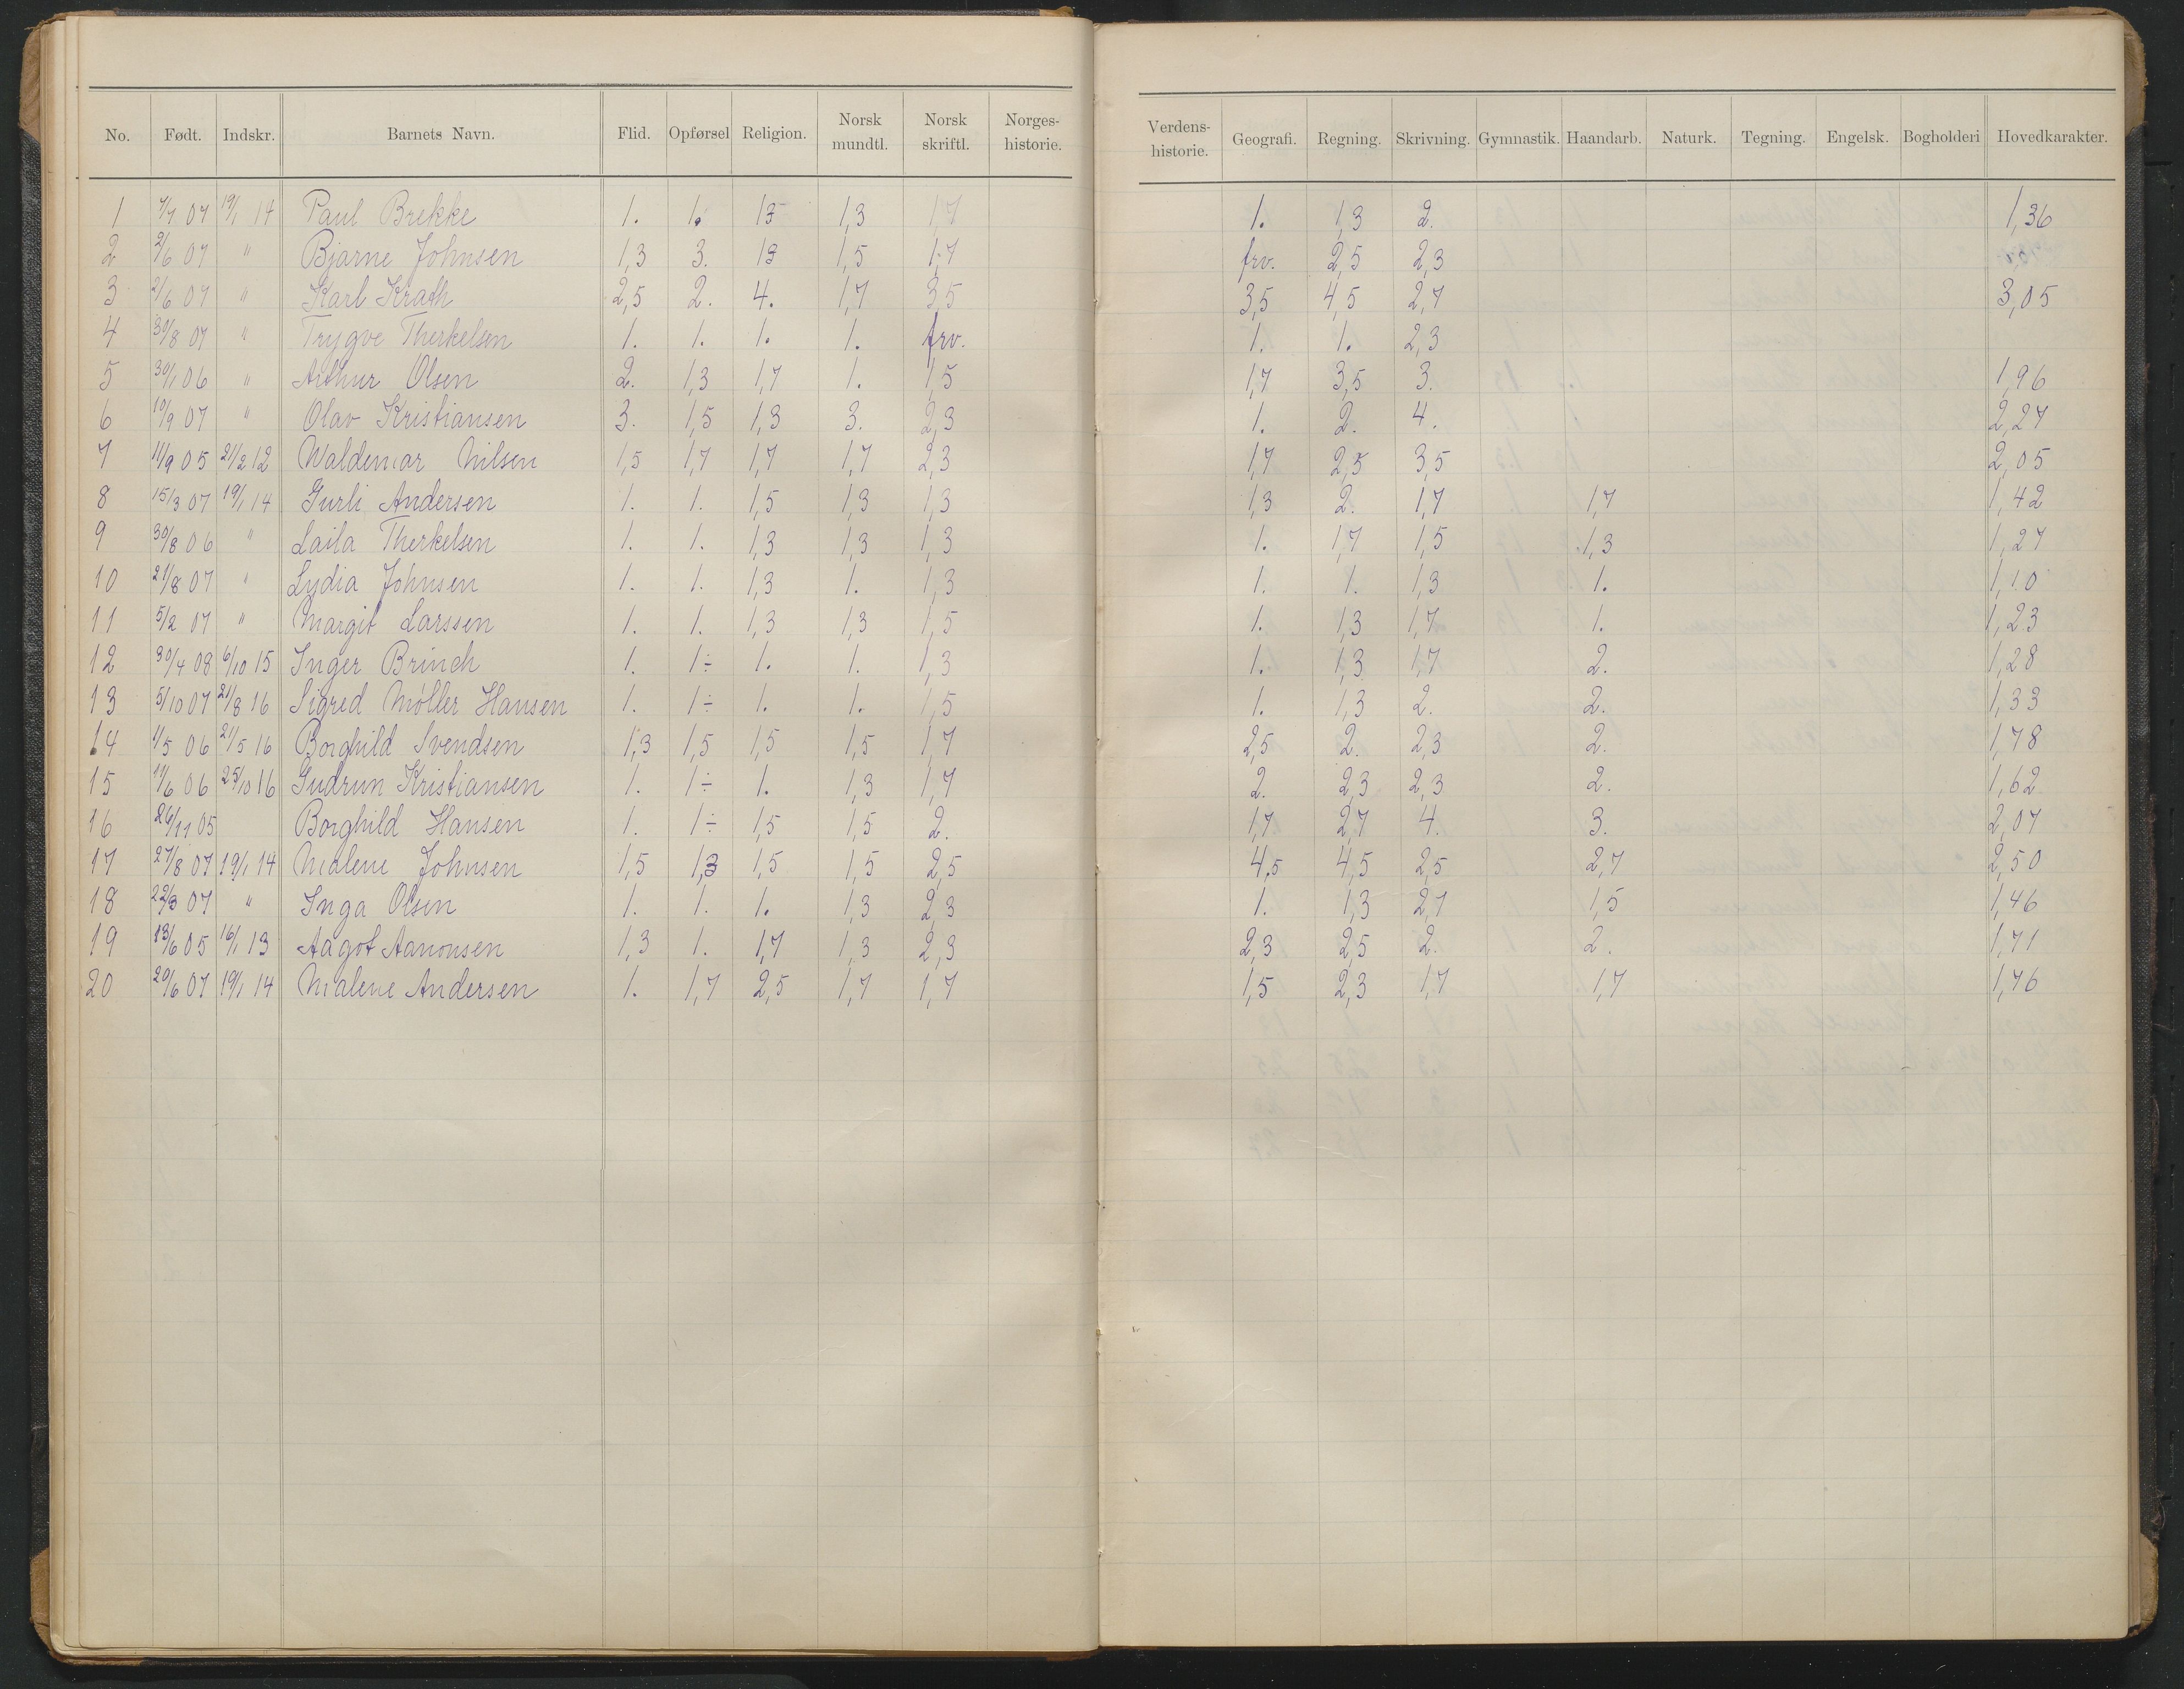 No. Født. Indskr. Barnets Navn. Flid. Opførsel Religion. Norsk mundtl. Norsk skriftl. Norges-historie. Verdens-historie. Geografi. Regning. Skrivning. Gymnastik. Haandarb. Naturk. Tegning. Engelsk. Bogholderi Hovedkarakter.
1 7/7 07 19/1 14 Paul Brekke 1. 1. 1,3 1,3 1,7 1. 1,3 2. 1,36
2 2/6 07 " Bjarne Johnsen 1,3 3. 1,3 1,5 1,7 frv. 2,5 2,3
3 2/6 07 " Karl Krath 2,5 2. 4. 1,7 3,5 3,5 4,5 2,7 3,05
4 30/8 07 " Trygve Therkelsen 1. 1. 1. 1. frv. 1. 1. 2,3
5 30/1 06 " Arthur Olsen 2. 1,3 1,7 1. 1,5 1,7 3,5 3. 1,96
6 10/9 07 " Olav Kristiansen 3. 1,5 1,3 3. 2,3 1. 2. 4. 2,27
7 11/9 05 21/2 12 Waldemar Nilsen 1,5 1,7 1,7 1,7 2,3 1,7 2,5 3,5 2,05
8 15/3 07 19/1 14 Gurli Andersen 1. 1. 1,5 1,3 1,3 1,3 2. 1,7 1,7 1,42
9 30/8 06 " Laila Therkelsen 1. 1. 1,3 1,3 1,3 1. 1,7 1,5 1,3 1,27
10 21/8 07 " Lydia Johnsen 1. 1. 1,3 1. 1,3 1. 1. 1,3 1. 1,10
11 5/2 07 " Margit Larssen 1. 1. 1,3 1,3 1,5 1. 1,3 1,7 1. 1,23
12 30/4 08 6/10 15 Inger Brinch 1. 1÷ 1. 1. 1,3 1. 1,3 1,7 2. 1,28
13 5/10 07 21/8 16 Sigred Møller Hansen 1. 1÷ 1. 1. 1,5 1. 1,3 2. 2. 1,33
14 1/5 06 21/5 16 Borghild Svendsen 1,3 1,5 1,5 1,5 1,7 2,5 2. 2,3 2. 1,78
15 11/6 06 25/10 16 Gudrun Kristiansen 1. 1÷ 1. 1,3 1,7 2. 2,3 2,3 2. 1,62
16 26/11 05 Borghild Hansen 1. 1÷ 1,5 1,5 2. 1,7 2,7 4. 3. 2,07
17 27/8 07 19/1 14 Malene Johnsen 1,5 1,3 1,5 1,5 2,5 4,5 4,5 2,5 2,7 2,50
18 22/3 07 " Inga Olsen 1. 1. 1. 1,3 2,3 1. 1,3 2,7 1,5 1,46
19 13/6 05 16/1 13 Aagot Aanonsen 1,3 1. 1,7 1,3 2,3 2,3 2,5 2. 2. 1,71
20 20/6 07 19/1 14 Malene Andersen 1. 1,7 2,5 1,7 1,7 1,5 2,3 1,7 1,7 1,76